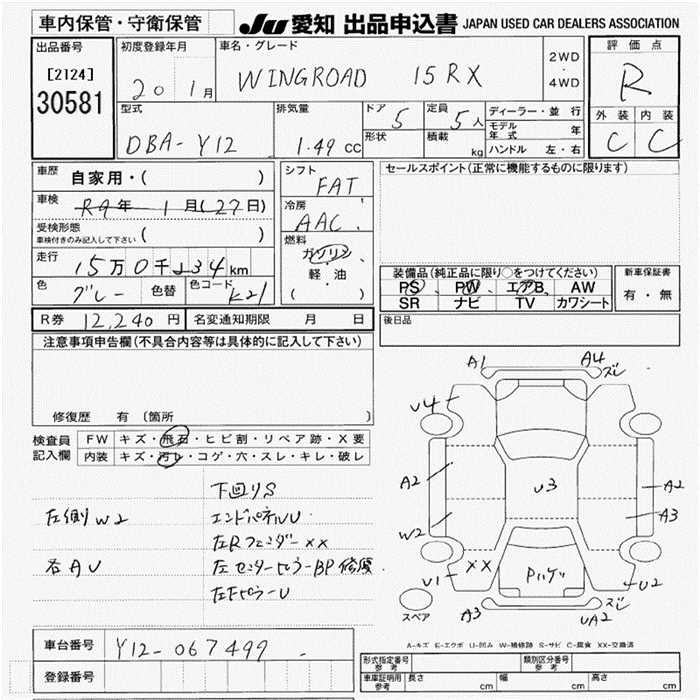 車内保管・守衛保管
JU 愛知 出品申込書 JAPAN USED CAR DEALERS ASSOCIATION
出品番号
[2124]
30581
初度登録年月
20 1月
車名・グレード
WINGROAD 15RX
2WD
・
4WD
評価点
R
外装 内装
C C
型式
DBA-Y12
排気量
1.49 CC
ドア 5
形状
定員 5人
積載 kg
ディーラー・並行
モデル年式 年
ハンドル 左・右
車歴
自家用・( )
車検
R9年 1月(27日)
受検形態
車検付きのみ記入して下さい ( )
走行
15万0千 34km
色
グレー 色替
色コード K21
シフト
FAT
冷房
AAC
燃料
ガソリン
・
軽・油
( )
セールスポイント(正常に機能するものに限ります)
装備品(純正品に限り○をつけてください)
PS PW エアB AW
SR ナビ TV カワシート
新車保証書
有・無
R券 12,240円 名変通知期限 月 日
後日品
注意事項申告欄(不具合内容等は具体的に記入して下さい)
修復歴 有 〔箇所
検査員
記入欄
FW キズ・飛石・ヒビ割・リペア跡・X要
内装 キズ・汚レ・コゲ・穴・スレ・キレ・破レ
下回りS
左側W2 エンドパネルU
左Rフェンダー××
右AU 左センターピラーBP修復
左FピラーU
A1 A4 ズレ
U4
A2
W2
U3
A2
A3
U1
××
U2
A3
UA2
ズレ
スペア
A-キズ E-エクボ U-凹み W-補修跡 S-サビ C-腐食 XX-交換済
車台番号 Y12-067499
登録番号
形式指定番号
参考
類別区分番号
参考
車庫証明用
参考
長さ cm 幅 cm 高さ cm